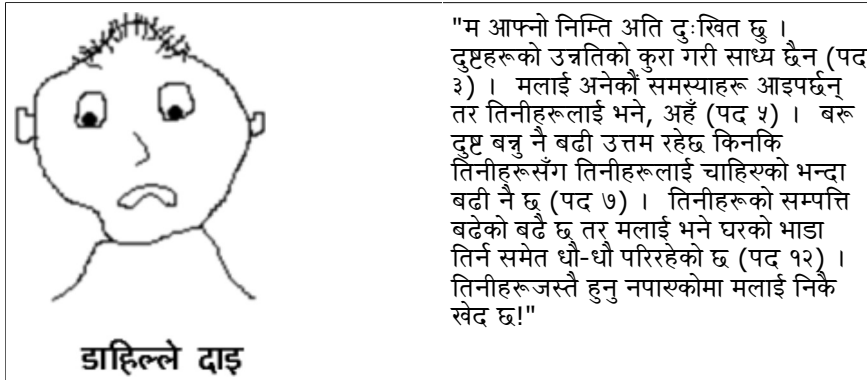 "म आफ्नो निम्ति अति दुःखित छु ।
दुष्टहरूको उन्नतिको कुरा गरी साध्य छैन (पद
३) ।  मलाई अनेकौं समस्याहरू आइपर्छन्
तर तिनीहरूलाई भने, अहँ (पद ५) ।  बरू
दुष्ट बन्नु नै बढी उत्तम रहेछ किनकि
तिनीहरूसँग तिनीहरूलाई चाहिएको भन्दा
बढी नै छ (पद ७) ।  तिनीहरूको सम्पत्ति
बढेको बढै छ तर मलाई भने घरको भाडा
तिर्न समेत धौ-धौ परिरहेको छ (पद १२) ।
तिनीहरूजस्तै हुनु नपाएकोमा मलाई निकै
खेद छ!"
डाहिल्ले दाइ